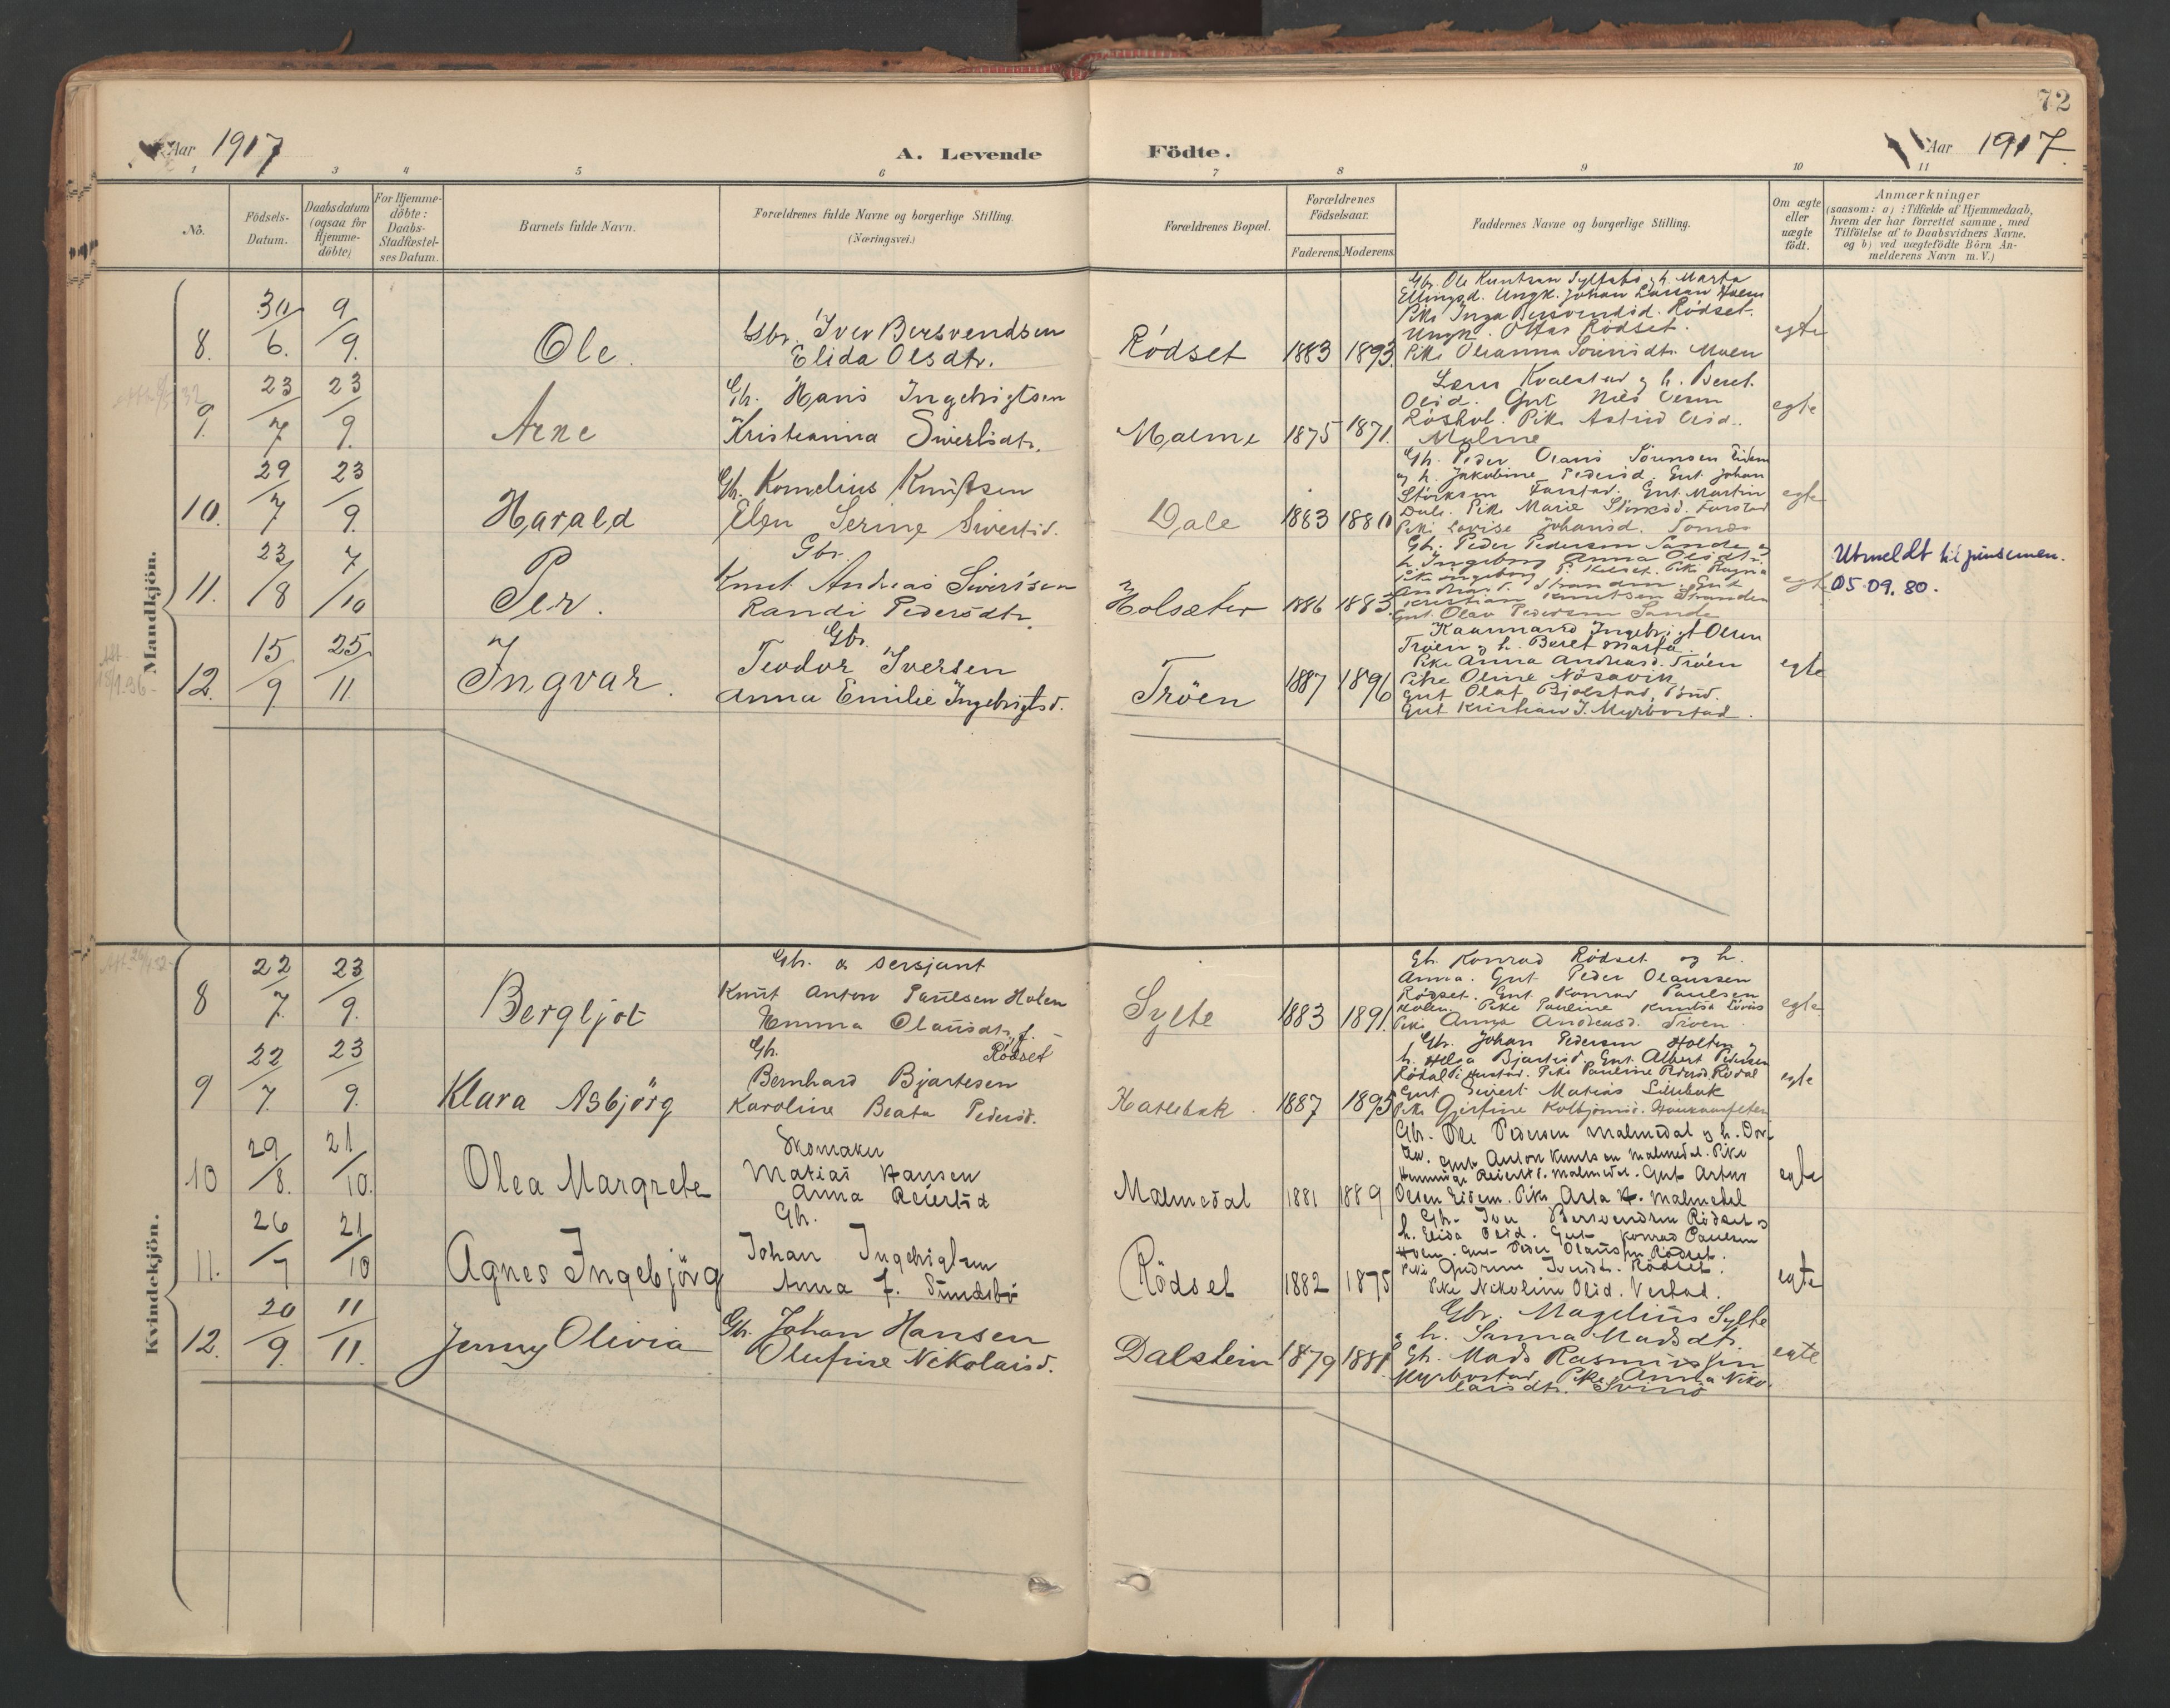 72
Aar 1917
A. Levende Födte.
Aar 1917.
1 3 4 5 6 7 8 9 10 11
No.
Födsels-Datum.
Daabsdatum (ogsaa for Hjemme-döbte)
For Hjemme-döbte: Daabs-Stadfæstel-ses Datum.
Barnets fulde Navn.
Forældrenes fulde Navne og borgerlige Stilling.
(Næringsvei.)
Forældrenes Bopæl.
Forældrenes Födselsaar.
Faderens. Moderens.
Faddernes Navne og borgerlige Stilling.
Om ægte eller uægte födt.
Anmærkninger
(saasom: a) i Tilfælde af Hjemmedaab,
hvem der har forrettet samme, med
Tilföielse af to Daabsvidners Navne.
og b) ved uægtefödte Börn An-
melderens Navn m. V.)
Mandkjön.
8. 30/6. 9/9. Ole.
Gbr. Iver Bersvendsen
Elida Olsdtr.
Rödset 1883 1893.
Ellingsd. Ungk. Johan Larsen
Pike Inga Bersvendsd. Rödset.
Ungk. Rödset.
egte
9. 23/7 23/9. Arne
Gbr. Hans Ingebrigtsen
Kristianna Sivertsdtr.
Malme 1875 1871.
og h. Beret
Olsd. Gut Nils
Pike Astrid Olsd.
Malme
egte
10. 29/7 23/9. Harald
Gbr. Kornelius Knutsen
Elen Serine Sivertsd.
Dale 1883 1880
Gbr. Peder Olaus Sörensen Eidem
og h. Jakobine Pedersd. Gut Johan
Farstad. Gut Martin
Dale. Pike Marie Farstad
Pike Lovise Johansd.
egte
11. 23/8 7/10 Per.
Gbr.
Knut Andreas Sivertsen
Randi Pedersdtr.
Holsæter 1886 1883.
Gbr. Peder Pedersen Sande og
h. Ingeborg Anna Olsdtr.
Pike Ingeborg Pike Ragna
Andreasd. Stranden. Gut
Kristian Knutsen Stranden
Gut Olav Pedersen Sande
egte
Utmeldt til pinsemen.
05.09.80.
12. 15/9 25/11. Ingvar.
Gbr.
Teodor Iversen
Anna Emilie Ingebrigtsd.
Tröen 1887 1896
Kaarmand Ingebrigt Olsen
Tröen og h. Beret Marta.
Pike Anna Andreasd. Tröen
Pike Oline Nösavik
Gut Olaf Bjölstad, Bud.
Gut Kristian J. Myrbostad.
egte
Kvindekjön.
8 22/7. 23/9. Bergljot
Gbr. & sersjant
Knut Anton Paulsen Holen
Emma Olausdtr. f.
Rödset
Sylte 1883 1891.
Gbr. Konrad Rödset og h.
Anna. Gut Peder Olaussen
Rödset. Gut Konrad Paulsen
Holen. Pike Pauline Knutsd.
Pike Anna Andreasd. Tröen.
egte
9 22/7. 23/9. Klara Asbjörg
Gbr.
Bernhard Bjartesen
Karoline Beata Pedersd.
Harebak. 1887 1895
Gbr. Johan Pedersen Holten og
h. Helga Bjartesd. Gut Albert Pedersen
Rödal i Hustad. Pike Pauline Pedersd. Rödal
Gut Sivert Matias
Pike Gjertine Kolbjörnsd.
egte
10 29/8. 21/10. Olea Margrete
Skomaker
Matias Hansen
Anna Reiertsd
Malmedal 1881 1889
Gbr. Ole Pedersen Malmedal og h. Dor-
tea. Gut Anton Knutsen Malmedal. Pike
Reiertsd. Malmedal. Gut Artur
Olsen Eidem. Pike Asta H. Malmedal
egte
11. 26/7 21/10 Agnes Ingebjörg
Gbr.
Johan Ingebrigtsen
Anna f. Sundsbö
Rödset 1882 1875
Gbr. Iver Bersvendsen Rödset og
h. Elida Olsd. Gut Konrad Paulsen
Holen. Gut Peder Olaussen Rödset.
Pike Gudrun Iversdtr. Rödset.
Pike Nikoline Olsd. Verstad.
egte
12. 20/9. 11/11. Jenny Olivia
Gbr. Johan Hansen
Olufine Nikolaisd.
Dalstein 1879 1881
Gbr. Magelius Sylte
og h. Sanna Madsdtr.
Gbr. Mads Rasmussen
Myrbostad, Pike Anna Niko-
laisdtr. Svinö
egte